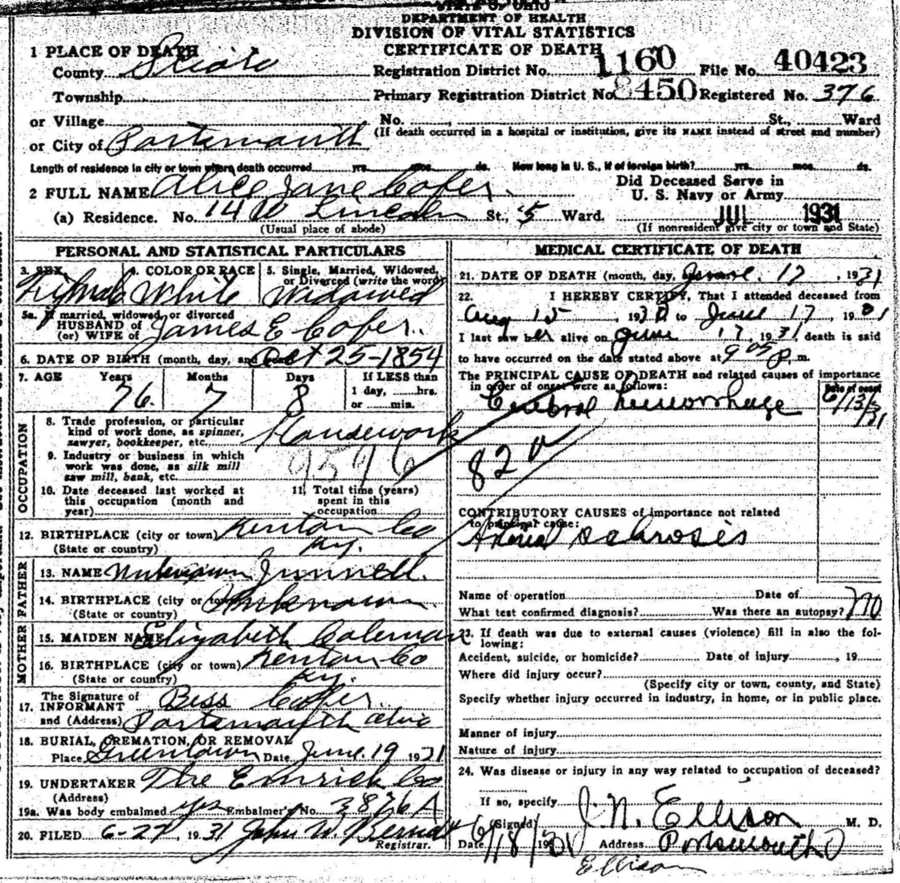 STATE OF OHIO
DEPARTMENT OF HEALTH
DIVISION OF VITAL STATISTICS
CERTIFICATE OF DEATH
1 PLACE OF DEATH
County Scioto Registration District No. 1160 File No. 40423
Township Primary Registration District No. 8450 Registered No. 376
or Village No. St., Ward
or City of Portsmouth (If death occurred in a hospital or institution, give its NAME instead of street and number)
Length of residence in city or town where death occurred yrs. mos. ds. How long in U. S., if of foreign birth? yrs. mos. ds.
2 FULL NAME Alice Jane Cofer Did Deceased Serve in U. S. Navy or Army
(a) Residence. No. 14 W Lincoln St., 5 Ward. JUL 1931
(Usual place of abode) (If nonresident give city or town and State)
PERSONAL AND STATISTICAL PARTICULARS
3. SEX 4. COLOR OR RACE White 5. Single, Married, Widowed, or Divorced (write the word) Widowed
5a. If married, widowed, or divorced
HUSBAND of (or) WIFE of James E Cofer
6. DATE OF BIRTH (month, day, and Oct 25-1854
7. AGE Years 76 Months 7 Days 8 If LESS than 1 day, hrs. or min.
OCCUPATION
8. Trade, profession, or particular kind of work done, as spinner, sawyer, bookkeeper, etc. Housework
9. Industry or business in which work was done, as silk mill saw mill, bank, etc. 9596
10. Date deceased last worked at this occupation (month and year)
11. Total time (years) spent in this occupation
12. BIRTHPLACE (city or town) Kenton Co
(State or country) Ky.
FATHER
13. NAME Unknown Junnell
14. BIRTHPLACE (city or town) Unknown
(State or country)
MOTHER
15. MAIDEN NAME Elizabeth Coleman
16. BIRTHPLACE (city or town) Kenton Co
(State or country) Ky.
17. The Signature of INFORMANT Bess Cofer
and (Address) Portsmouth Ohio
18. BURIAL, CREMATION, OR REMOVAL
Place Greenlawn Date June 19 1931
19. UNDERTAKER The Emrick Co
(Address)
19a. Was body embalmed yes Embalmer's No. 3826 A
20. FILED 6-22 1931 John W Berndt
Registrar.
MEDICAL CERTIFICATE OF DEATH
21. DATE OF DEATH (month, day, June 17, 1931
22. I HEREBY CERTIFY, That I attended deceased from
Aug 15, 1930 to June 17, 1931
I last saw her alive on June 17, 1931 death is said
to have occurred on the date stated above at 9 05 P. m.
The PRINCIPAL CAUSE OF DEATH and related causes of importance
in order of onset were as follows: Date of onset
Cerebral hemorrhage 6/13/31
82 a
CONTRIBUTORY CAUSES of importance not related
to principal cause:
Arterial sclrosis
Name of operation Date of
What test confirmed diagnosis? Was there an autopsy? no
23. If death was due to external causes (violence) fill in also the following:
Accident, suicide, or homicide? Date of injury , 19
Where did injury occur?
(Specify city or town, county, and State)
Specify whether injury occurred in industry, in home, or in public place.
Manner of injury
Nature of injury
24. Was disease or injury in any way related to occupation of deceased?
If so, specify
(Signed) J. N. Ellison M. D.
Date 6/18/31 Address Portsmouth O
Ellison